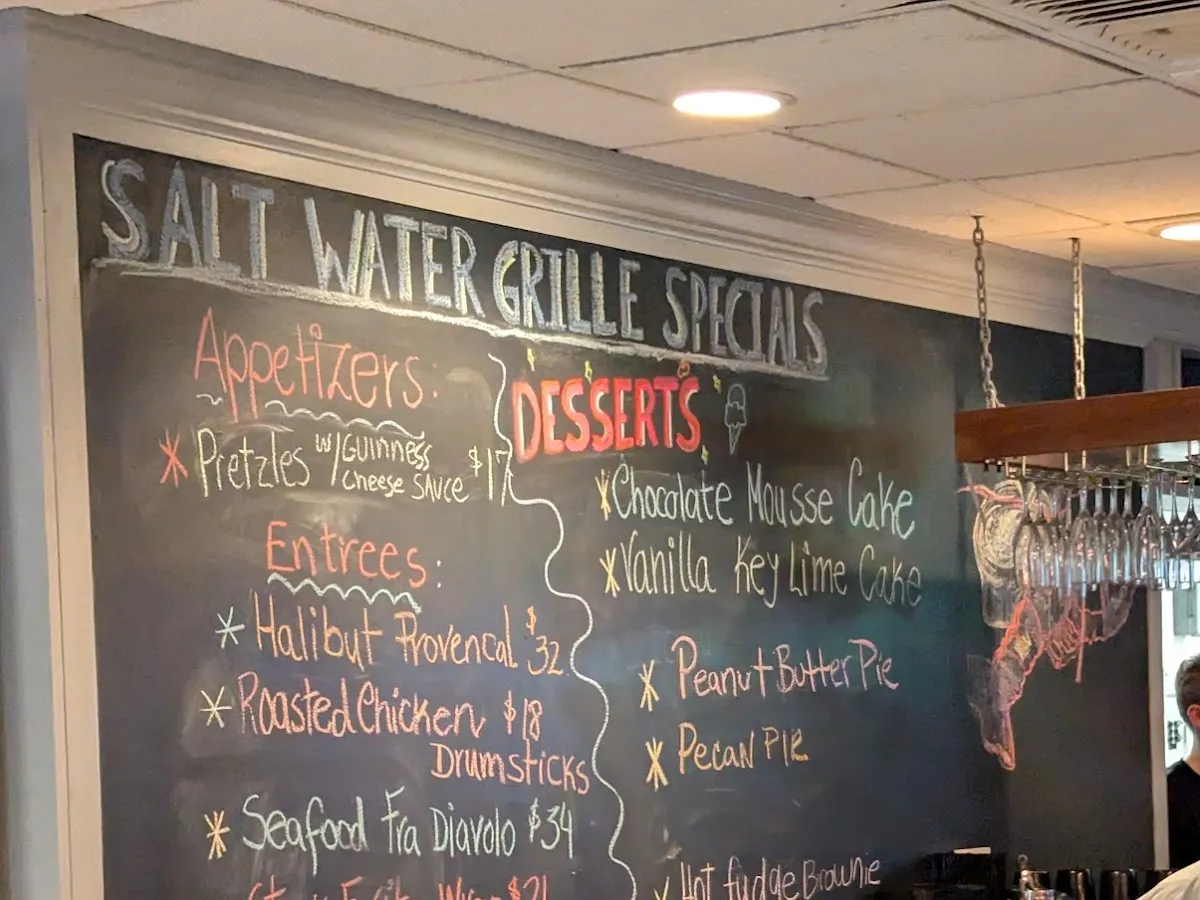 SALT WATER GRILLE SPECIALS
Appetizers:
* Pretzles w/ GUINNESS
Cheese SAUCE $17
Entrees:
* Halibut Provencal $32
* Roasted Chicken $18
Drumsticks
* Seafood Fra Diavolo $34
$21
DESSERTS
* Chocolate Mousse Cake
* Vanilla Key Lime Cake
* Peanut Butter Pie
* Pecan PIE
* Hot fudge Brownie